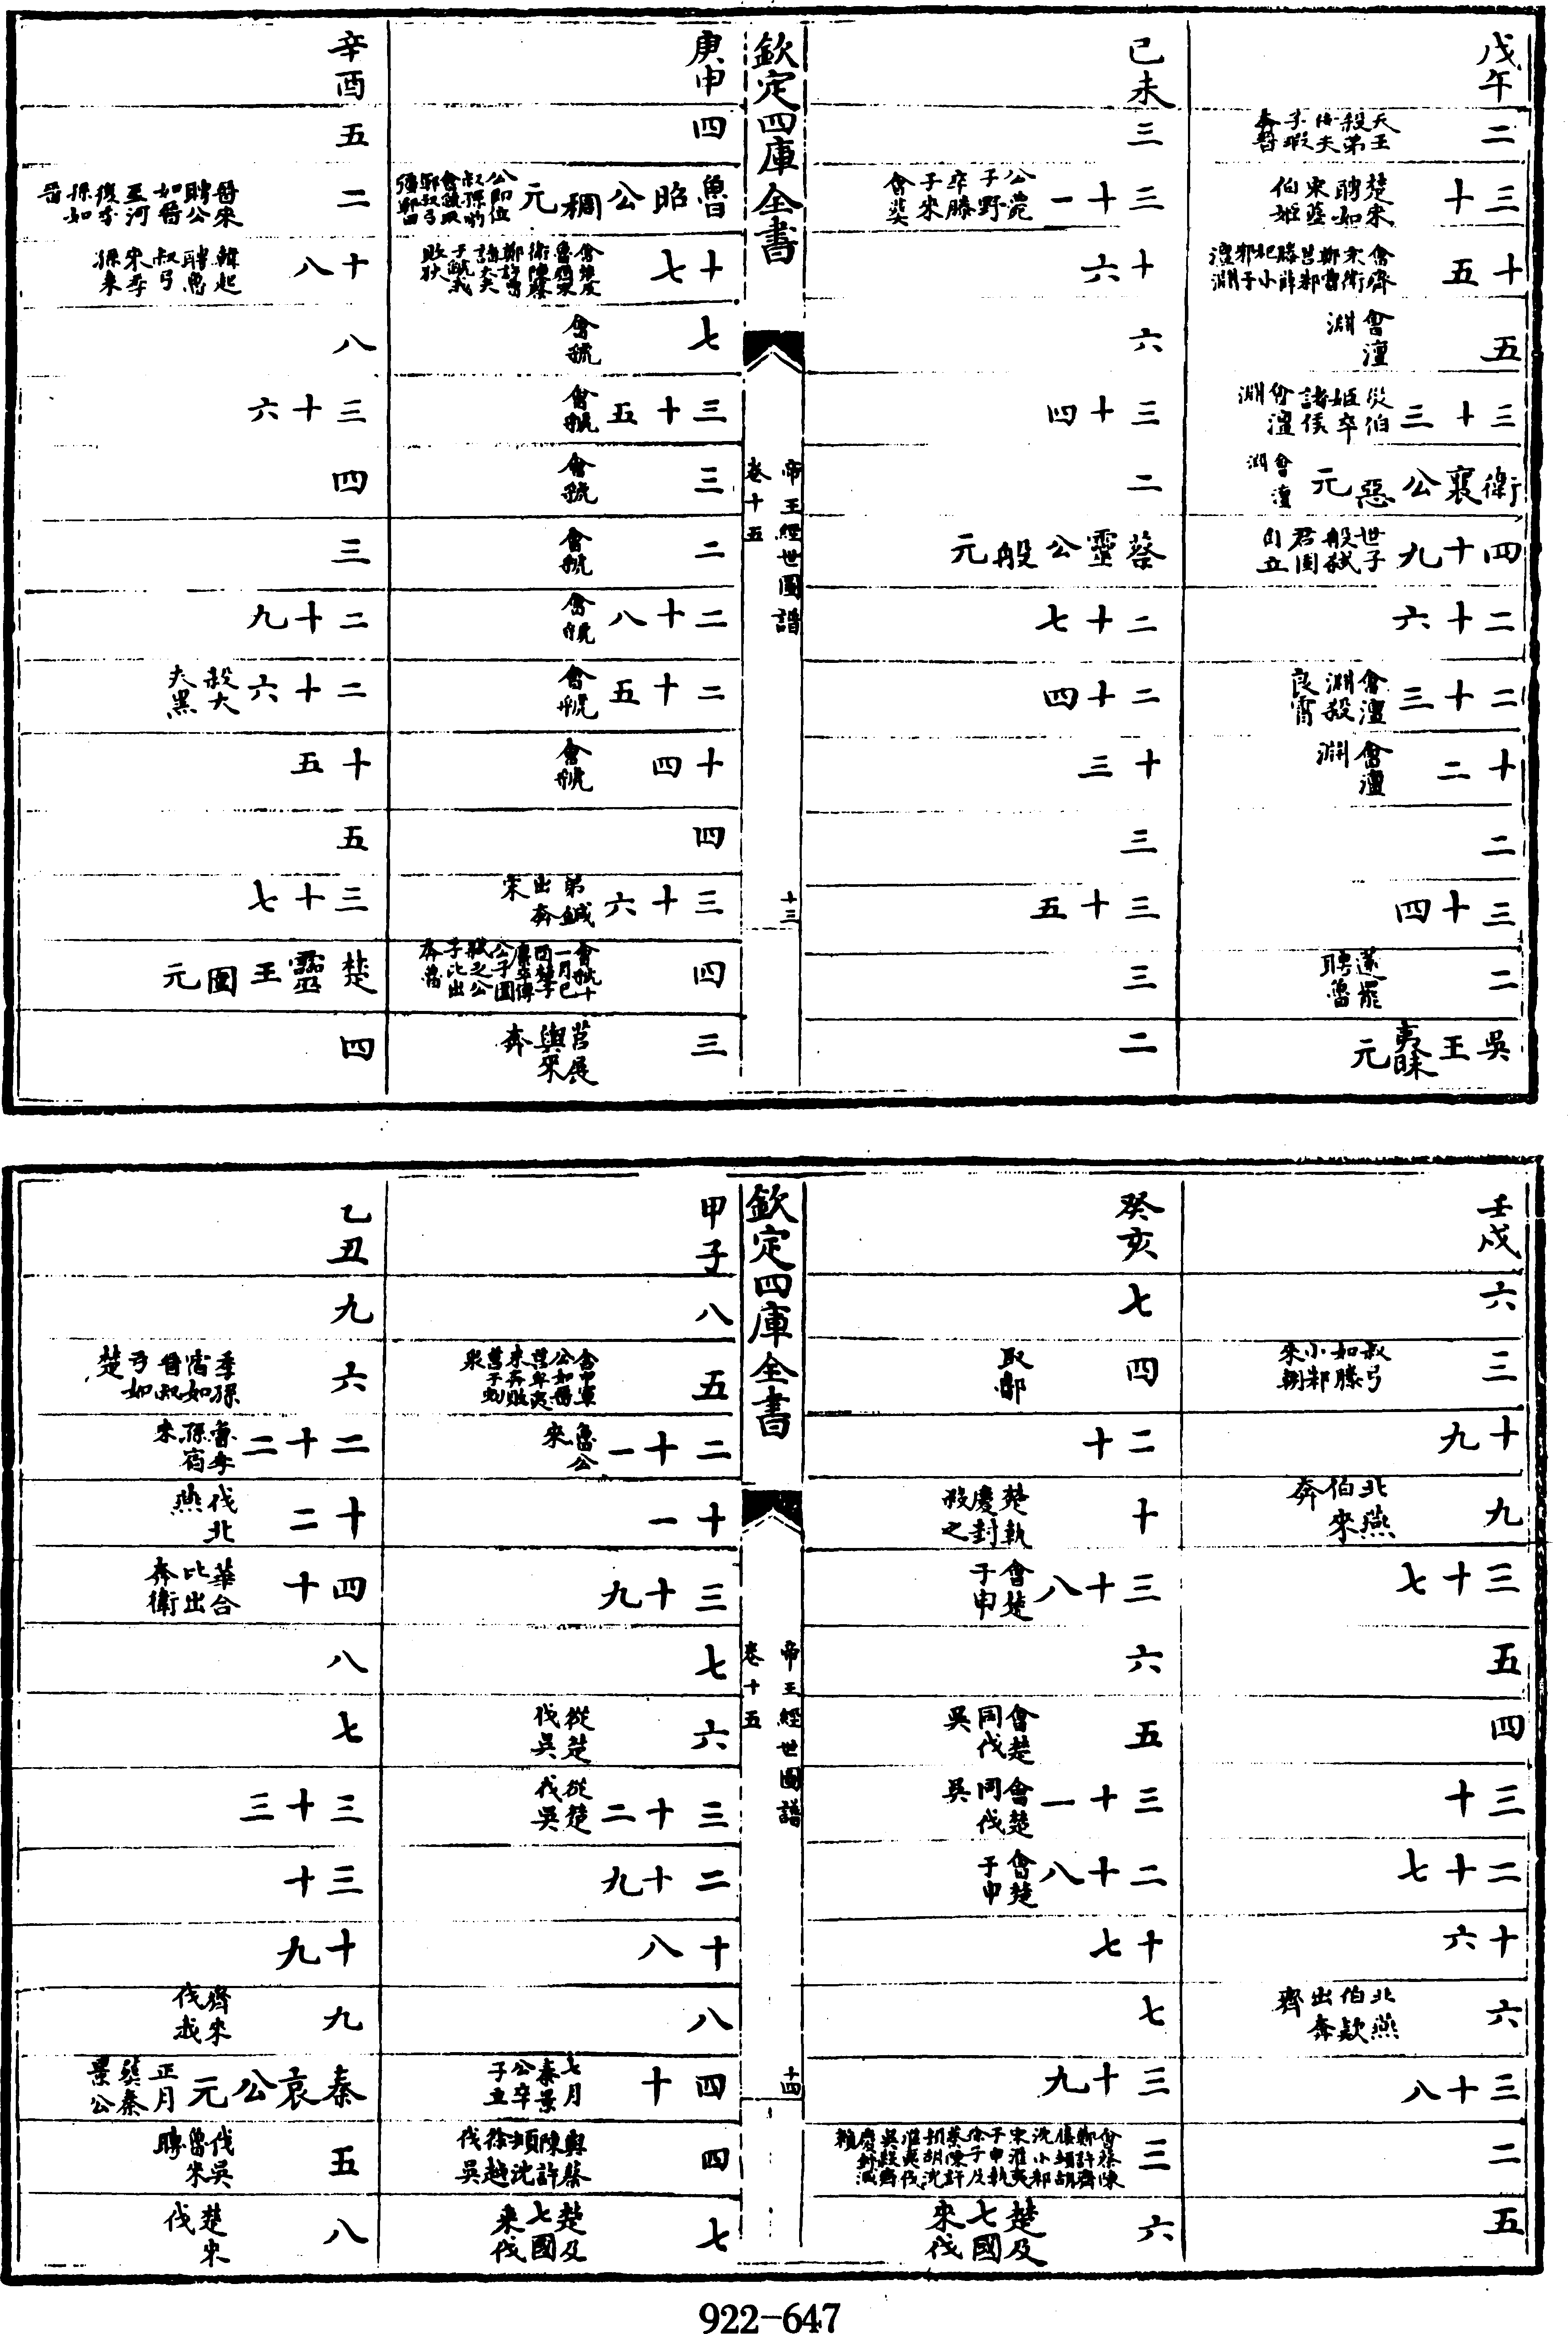 戊午
二 天王殺弟佞夫子瑕奔晉
三十 楚來聘如宋葬伯姬
十五 會齊宋衛鄭曹莒邾滕薛杞小邾子澶淵
五 會澶淵
三十三 災伯姬卒諸侯會澶淵
衛襄公惡元 會澶淵
四十九 世子般弒君固自立
二十六
二十三 會澶淵殺良霄
十二 會澶淵
二
三十四
二 薳罷聘魯
吳王夷昧元
己未
三
三十一 公薨子野卒滕子來會葬
十六
六
三十四
二
蔡靈公般元
二十七
二十四
十三
三
三十五
三
二
欽定四庫全書
帝王經世圖譜
卷十五
十三
庚申
四
魯昭公稠元 公即位叔孫豹會虢取鄆叔弓疆鄆田
十七 會楚及魯齊宋衛陳蔡鄭許曹諸大夫于虢敗狄
七 會虢
三十五 會虢
三 會虢
二 會虢
二十八 會虢
二十五 會虢
十四 會虢
四
三十六 弟鍼出奔宋
四 會虢十一月己酉楚子麇卒傳公子圍弒之公子比出奔晉
三 莒展輿來奔
辛酉
五
二 晉來聘公如晉至河復季孫如晉
十八 韓起聘魯叔弓來季孫來
八
三十六
四
三
二十九
二十六 殺大夫黑
十五
五
三十七
楚靈王圍元
四
壬戌
六
三 叔弓如滕小邾來朝
十九
九 北燕伯來奔
三十七
五
四
三十
二十七
十六
六 北燕伯欵出奔齊
三十八
二
五
癸亥
七
四 取鄫
二十
十 楚執慶封殺之
三十八 會楚于申
六
五 會楚同伐吳
三十一 會楚同伐吳
二十八 會楚于申
十七
七
三十九
三 會蔡陳鄭許齊滕頓胡沈小邾宋淮夷于申執徐子及蔡陳許頓胡沈淮夷伐吳殺齊慶封滅賴
六 楚及七國來伐
欽定四庫全書
帝王經世圖譜
卷十五
十四
甲子
八
五 舍中軍公如晉莒牟夷來奔敗莒于蚡泉
二十一 魯公來
十一
三十九
七
六 從楚伐吳
三十二 從楚伐吳
二十九
十八
八
四十 七月秦景公卒子立
四 與蔡陳許頓沈徐越伐吳
七 楚及七國來伐
乙丑
九
六 季孫宿如晉叔弓如楚
二十二 魯季孫宿來
十二 伐北燕
四十 華合比出奔衛
八
七
三十三
三十
十九
九 齊來伐我
秦哀公元 正月葬秦景公
五 伐吳魯來聘
八 楚來伐
922-647